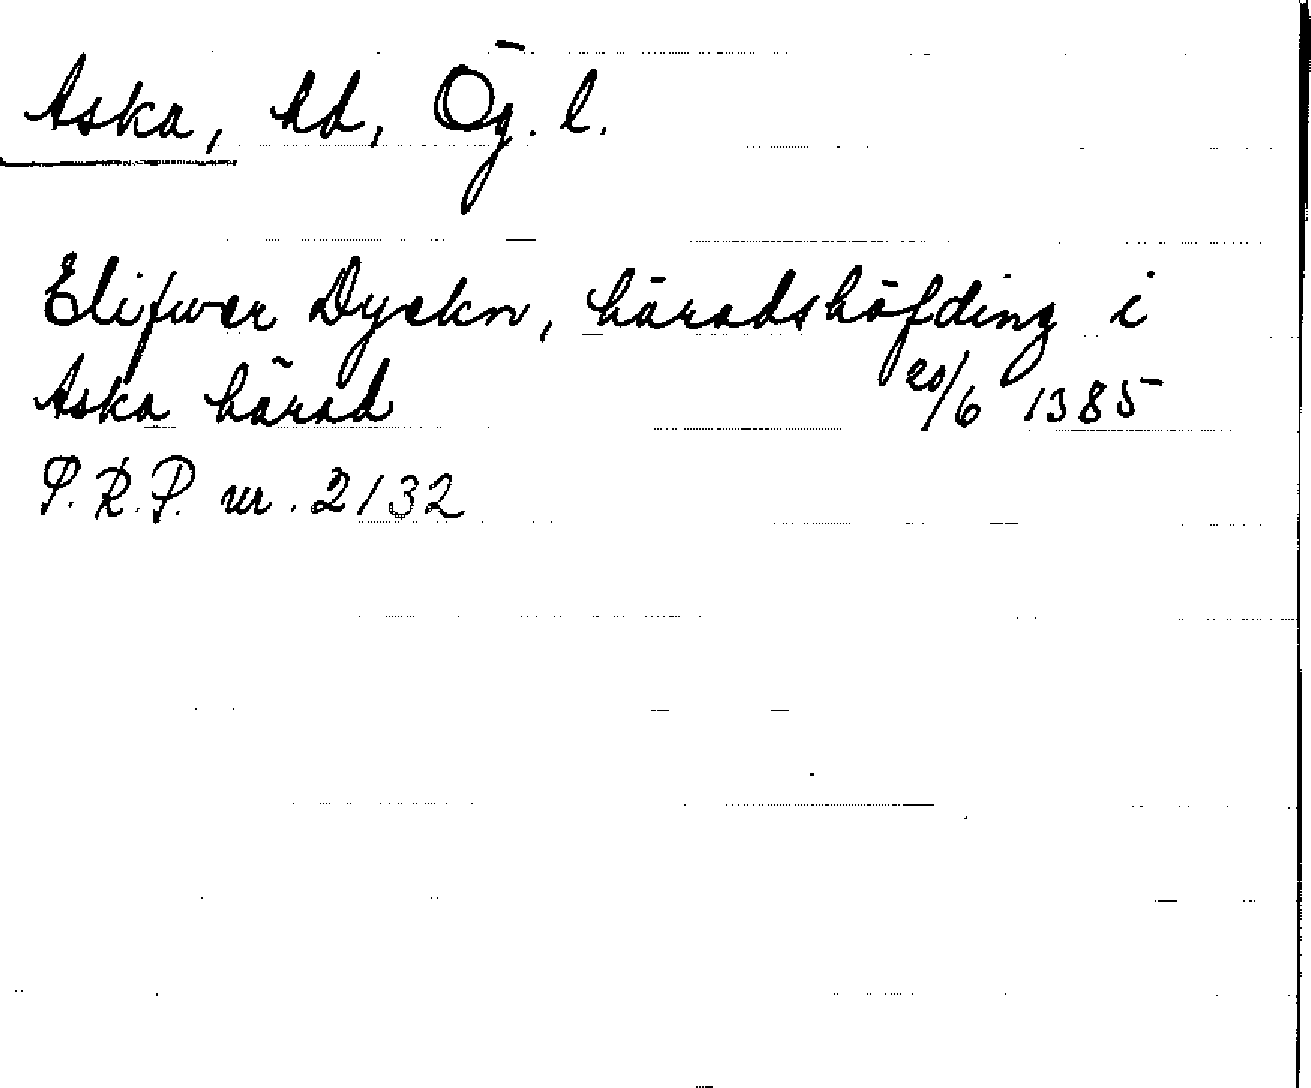 Aska, hd, Ög. l.
Elifwer Dyekn, häradshöfding i
Aska härad 20/6 1385
S.R.P. nr. 2132